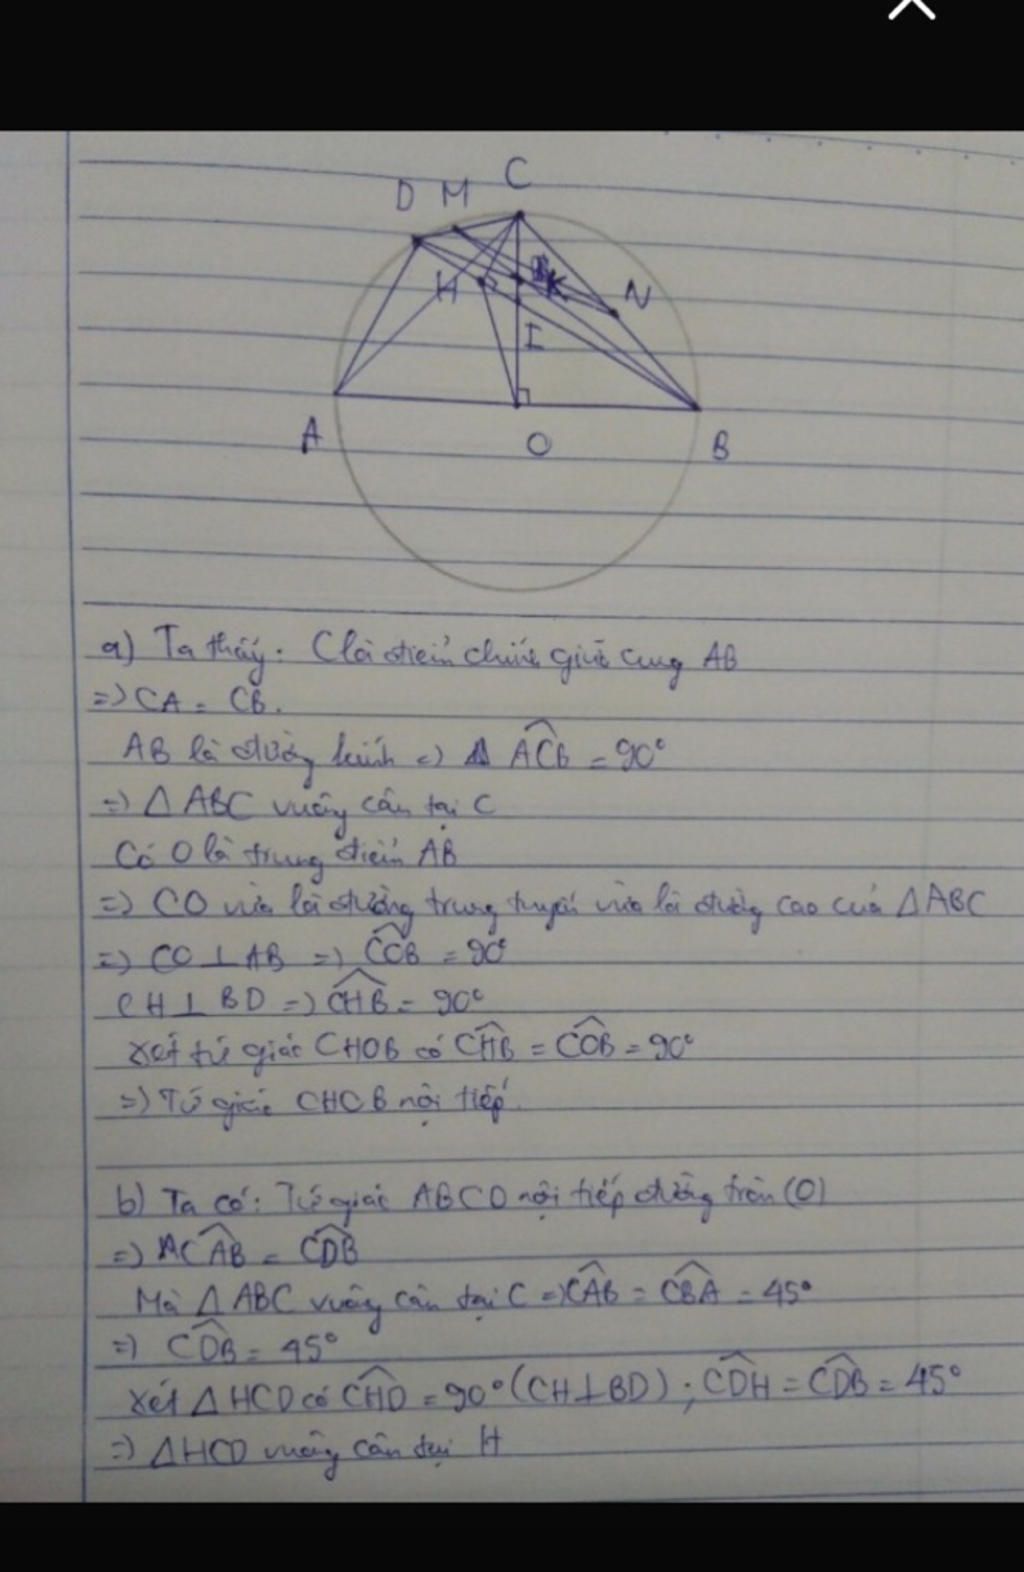 C
D M
H K N
I
A O B
a) Ta thấy: C là điểm chính giữa cung AB
=> CA = CB.
AB là đường kính => ACB = 90°
=> △ ABC vuông cân tại C
Có O là trung điểm AB
=> CO vừa là đường trung tuyến vừa là đường cao của △ABC
=> CO ⊥ AB => COB = 90°
CH ⊥ BD => CHB = 90°
Xét tứ giác CHOB có CHB = COB = 90°
=> Tứ giác CHOB nội tiếp.
b) Ta có: Tứ giác ABCD nội tiếp đường tròn (O)
=> CAB = CDB
Mà △ ABC vuông cân tại C => CAB = CBA = 45°
=> CDB = 45°
Xét △ HCD có CHD = 90° (CH ⊥ BD) ; CDH = CDB = 45°
=> △HCD vuông cân tại H